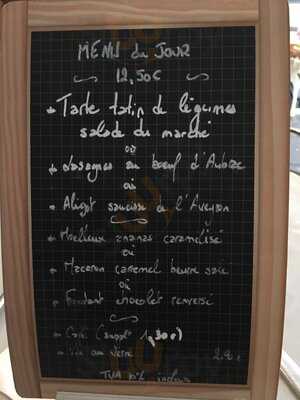 MENU du JOUR
12,50€
Tarte tatin de légumes
salade du marché
ou
Lasagnes au boeuf d'Aubrac
ou
Aligot saucisse de l'Aveyron
Moelleux ananas caramélisé
ou
Macaron caramel beurre salé
ou
Fondant chocolat renversé
Café (suppl 1,30€)
Vin au verre
TVA